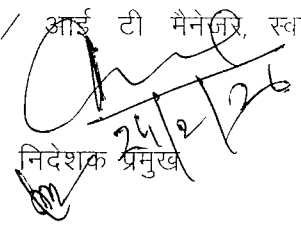 / आई टी मैनेजर, स्व
24/2/26
निदेशक प्रमुख